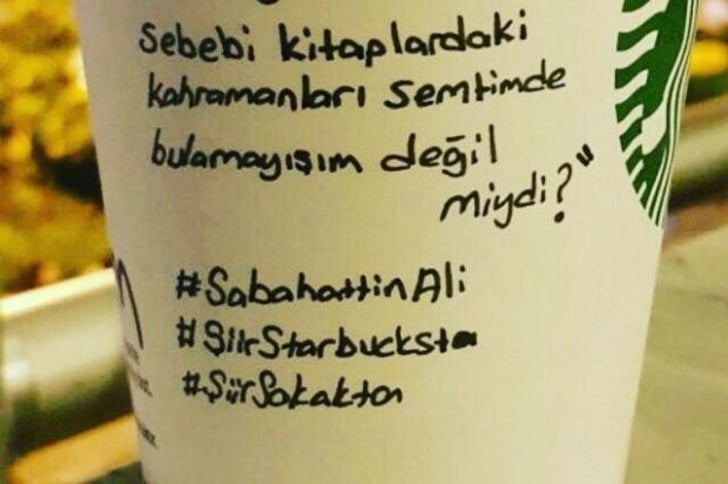 Sebebi kitaplardaki
kahramanları semtimde
bulamayışım değil
miydi?"
#SabahattinAli
#ŞiirStarbucksta
#ŞiirSokakta